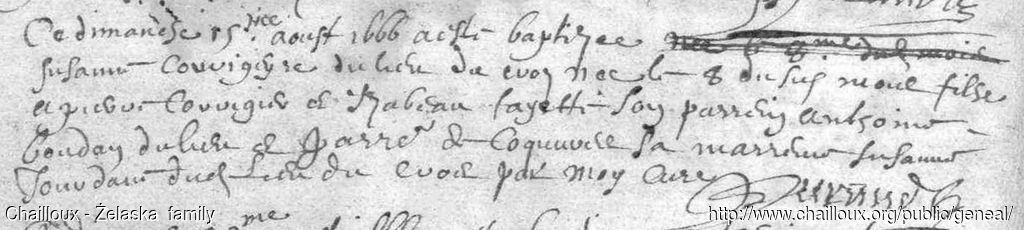 Ce dimanche 15.me aoust 1666 a este baptizee nee le 8me dud. mois
susanne Couvigeyre du lieu du nee le 8 du sus. mois fille
a pierre Couvigier et Izabeau fayette son parrein anthoine
Boudon du lieu de parre de sa marreine susanne
Jourdane dud. Lieu du par moy Cure
Chailloux - Żelaska family
http://www.chailloux.org/public/geneal/